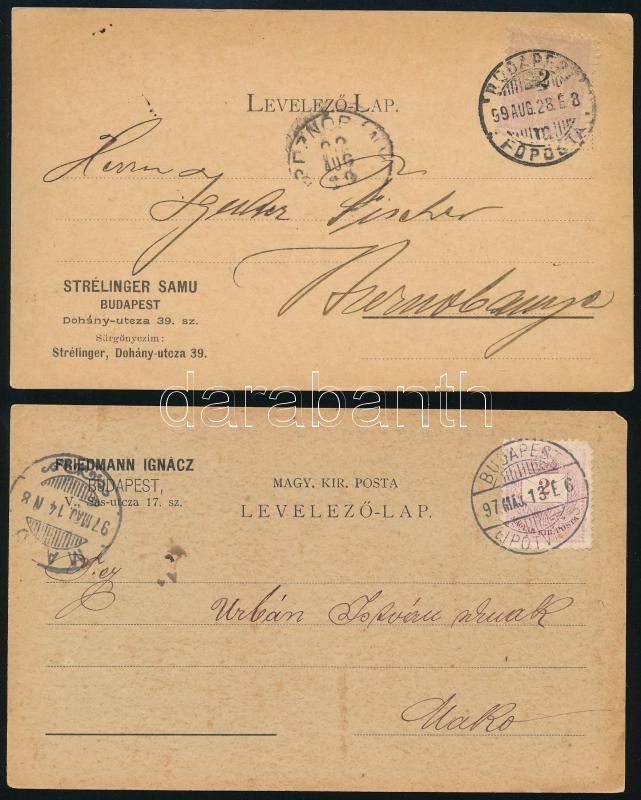 LEVELEZŐ-LAP.
BUDAPEST
2
99 AUG. 28. E 8
FŐPOSTA
AUG
Herrn
Fischer
STRÉLINGER SAMU
BUDAPEST
Dohány-utcza 39. sz.
Sürgönyczim:
Strélinger, Dohány-utcza 39.
darabanth
FRIEDMANN IGNÁCZ
BUDAPEST,
MAGY. KIR. POSTA
LEVELEZŐ-LAP.
BUDAPEST
2
97 MÁJ. 13 E 6
MAGYAR KIR. POSTA
97 MÁJ. 14 N 8
MAKÓ
T. cz.
Urbán István urnak
Makó